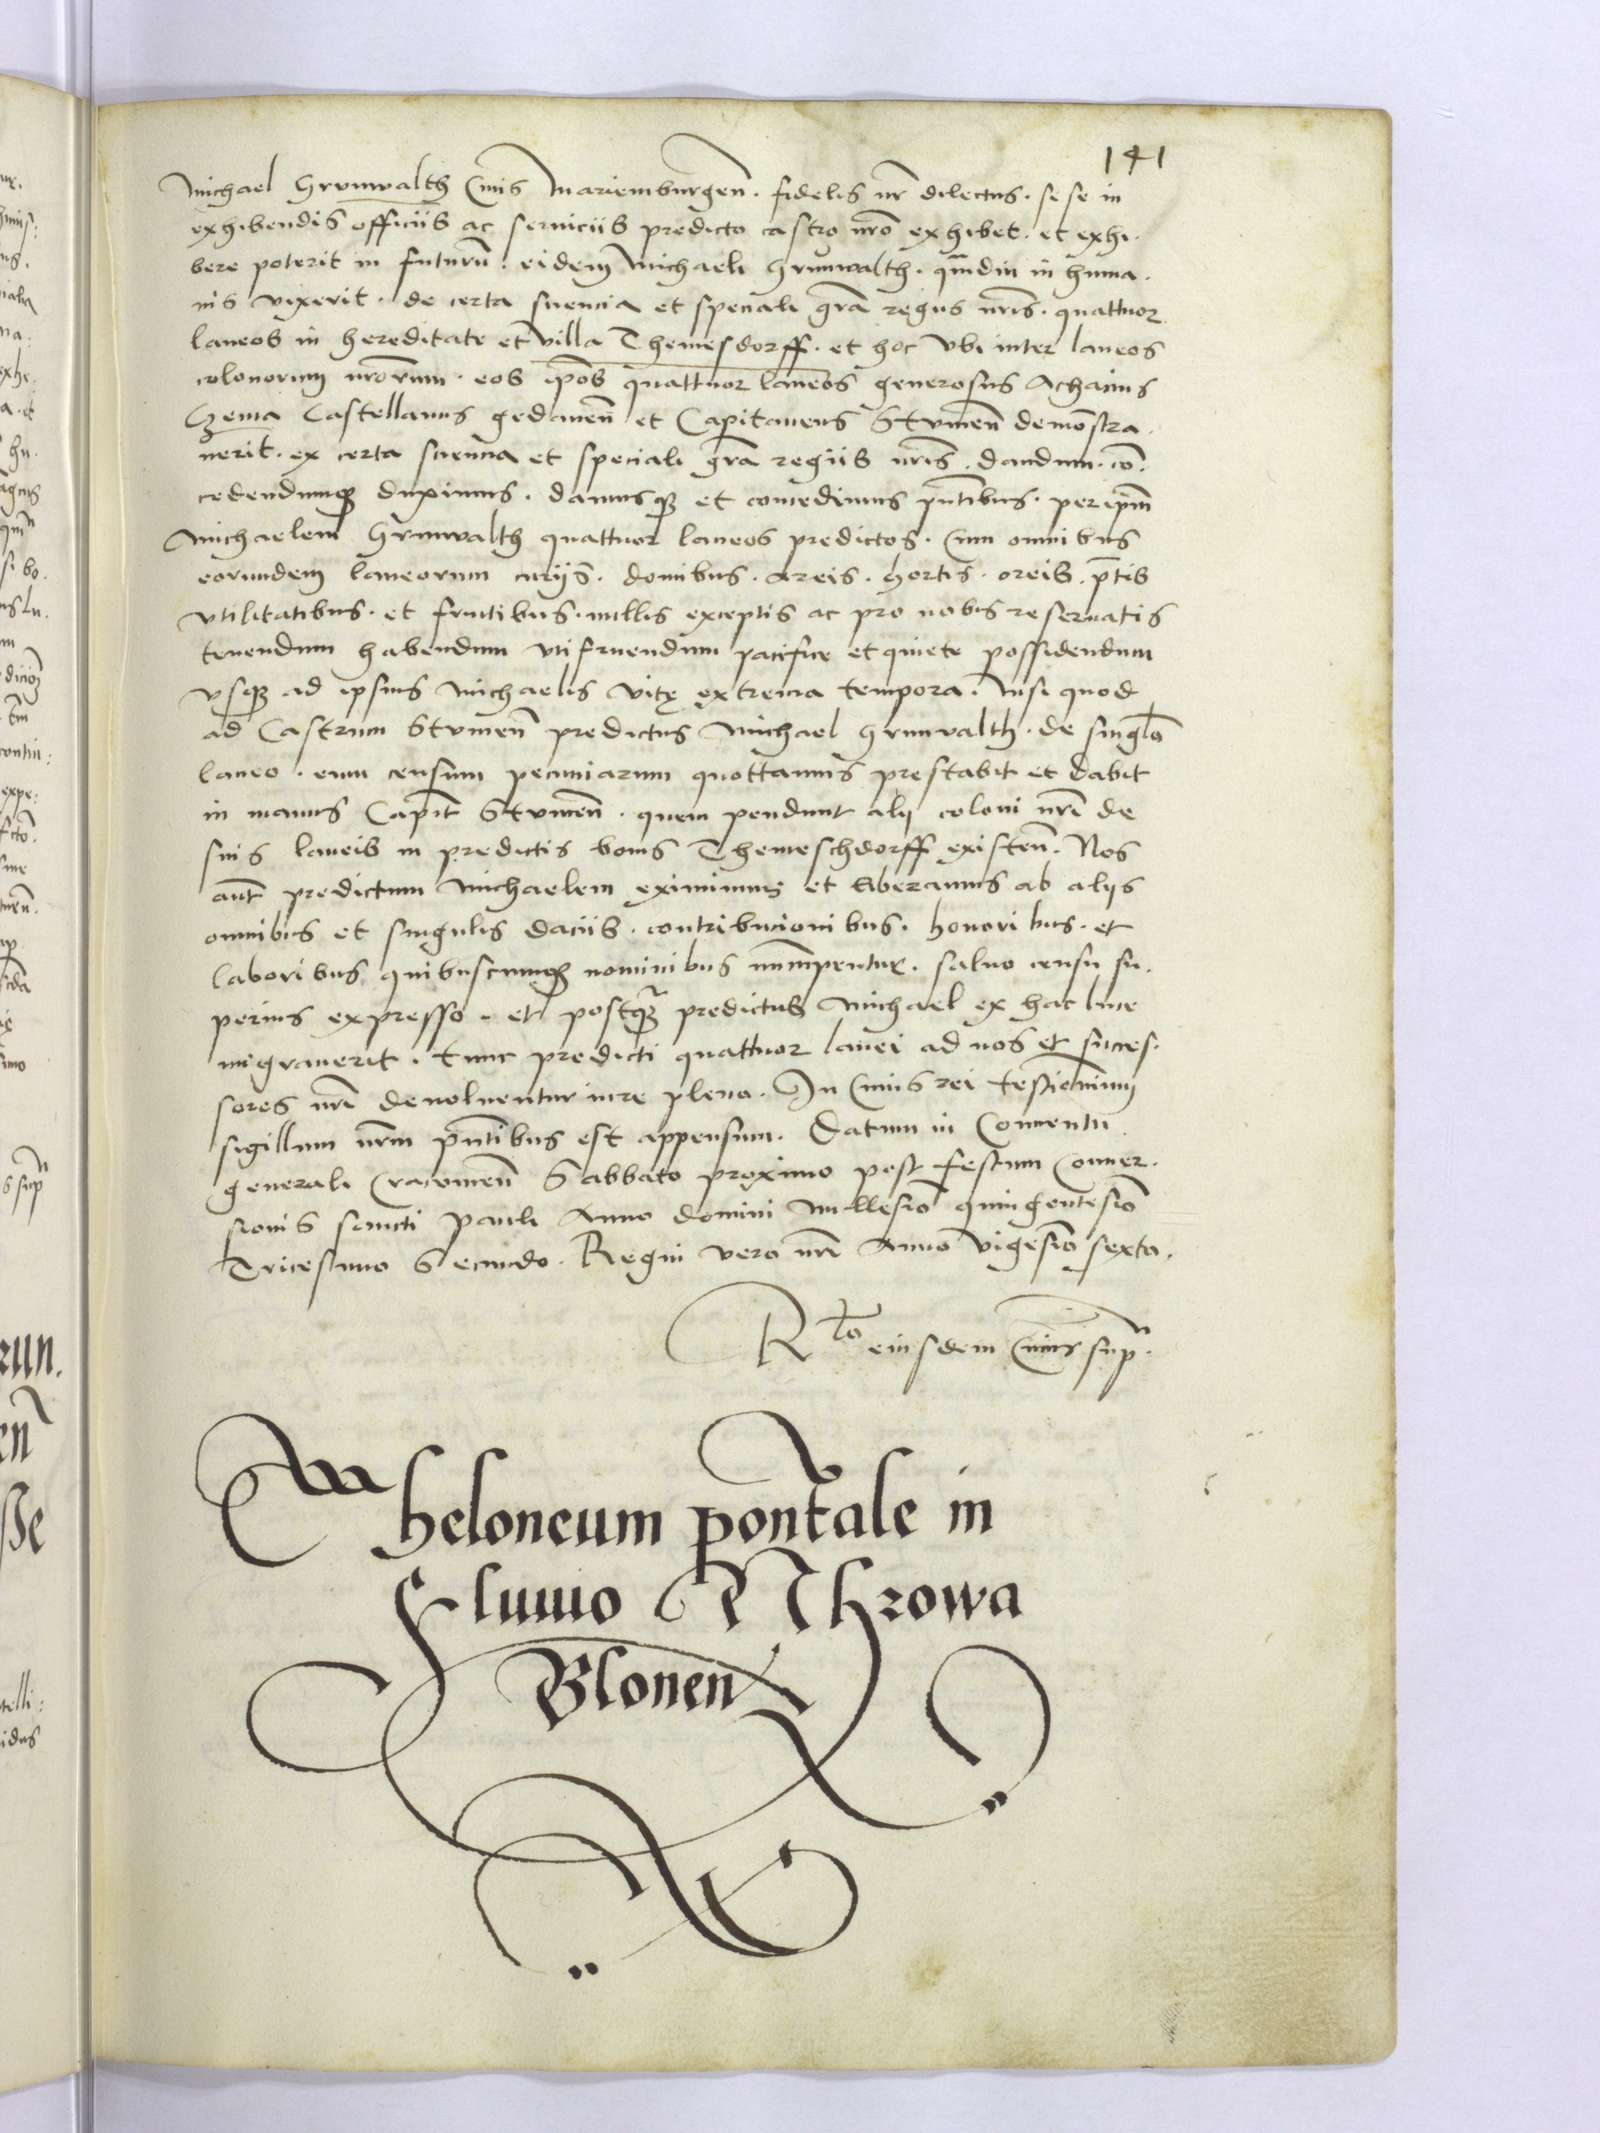 141
Michael Grunwalth Civis Mariemburgeñ. fidelis nr̃ dilectus. sese in
exhibendis officiis ac serviciis predicto castro nrõ exhibet. et exhi.
bere poterit in futurũ. eidem Michaeli Grunwalth. quãdiu in huma.
nis vixerit. de certa sciencia et speciali grã regiis nrĩs. quattuor
laneos in hereditate et villa Themesdorff. et hoc ubi inter laneos
colonorum nrõrum. eos ipõs quattuor laneos generosus Achacius
Czema Castellanus gedaneñ et Capitaneus Stvmeñ demõstra.
verit. ex certa sciencia et speciali grã regiis nrĩs. dandum. cõ.
cedendumq duximus. damusq et concedimus pñtibus. per ipm̃
Michaelem Grunwalth quattuor laneos predictos. cum omnibus
eorundem laneorum curiis. domibus. areis. hortis. oreis. prãtis
utilitatibus. et fructibus. nullis exceptis ac pro nobis reservatis
tenendum habendum utifruendum pacifice et quiete possidendum
usq ad ipsius Michaelis vitę extrema tempora. Nisi quod
ad Castrum Stvmeñ predictus Michael Grunwalth. de singlo
laneo. eum censum pecuniarum quottannis prestabit et dabit
in manus Capit̃ Stvmeñ. quem pendunt alij coloni nrĩ de
suis laneis in predictis bonis Themeschdorff existeñ. Nos
aut̃ predictum Michaelem eximimus et liberamus ab alijs
omnibus et singulis daciis. contribucionibus. honoribus. et
laboribus quibuscumq nominibus nuncupentur. salvo censu su.
perius expresso. et postq̃ predictus Michael ex hac luce
migraverit. tunc predicti quattuor lanei ad nos et succes.
sores nrĩ devolventur iure pleno. In cuius rei testimonium
sigillum nrm̃ pñtibus est appensum. Datum in Conventu
generali Cracovieñ Sabbato proximo post festum Conver.
sionis sancti Pauli Anno domini Millesiõ quingentesiõ
Tricesimo Secundo. Regni vero nrĩ Anno vigesiõ sexto.
Rlo eiusdem cuius sup̃.
Theloneum pontale in
fluvio Mhrowa
Bloneñ